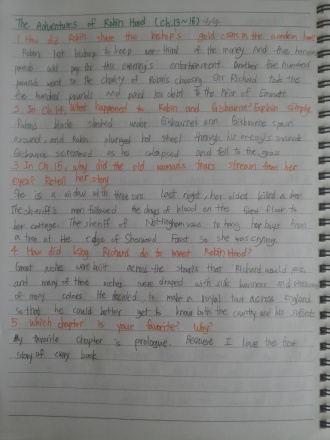 The Adventures of Robin Hood (ch.13~16)
1. How did Robin share the bishop's gold coins in the wooden box?
Robin let bishop to keep one-third of the money. And five hundred
pounds will pay for this evening's entertainment. Another five hundred
pounds went to the charity of Robin's choosing. Sir Richard took the
five hundred pounds and paid his debt to the Prior of Emmett
2. In Ch.14, what happened to Robin and Gisbourne? Explain simply.
Robin's blade slashed under Gisbourne's arm. Gisbourne spun
around, and Robin plunged hot steel through his enemy's
Gisbourne screamed as he collapsed and fell to the grass
3. In Ch.15, why did the old woman's tears stream from her
eyes? Retell her story
She is a widow with three sons. Last night, her oldest killed a deer.
The sheriff's men followed the drops of blood on the floor to
her cottage. The sheriff of Nottingham to hang her boys from
a tree at the edge of Sherwood Forest so she was crying.
4. How did King Richard do to meet Robin Hood?
Great arches were built across the streets that Richard would
and many of these arches were draped with silk banners and
of many colors He decided to make a royal tour across England
so that he could better get to know both the country and his subjects
5. Which chapter is your favorite? Why?
My favorite chapter is prologue. Because I love the first
story of every book